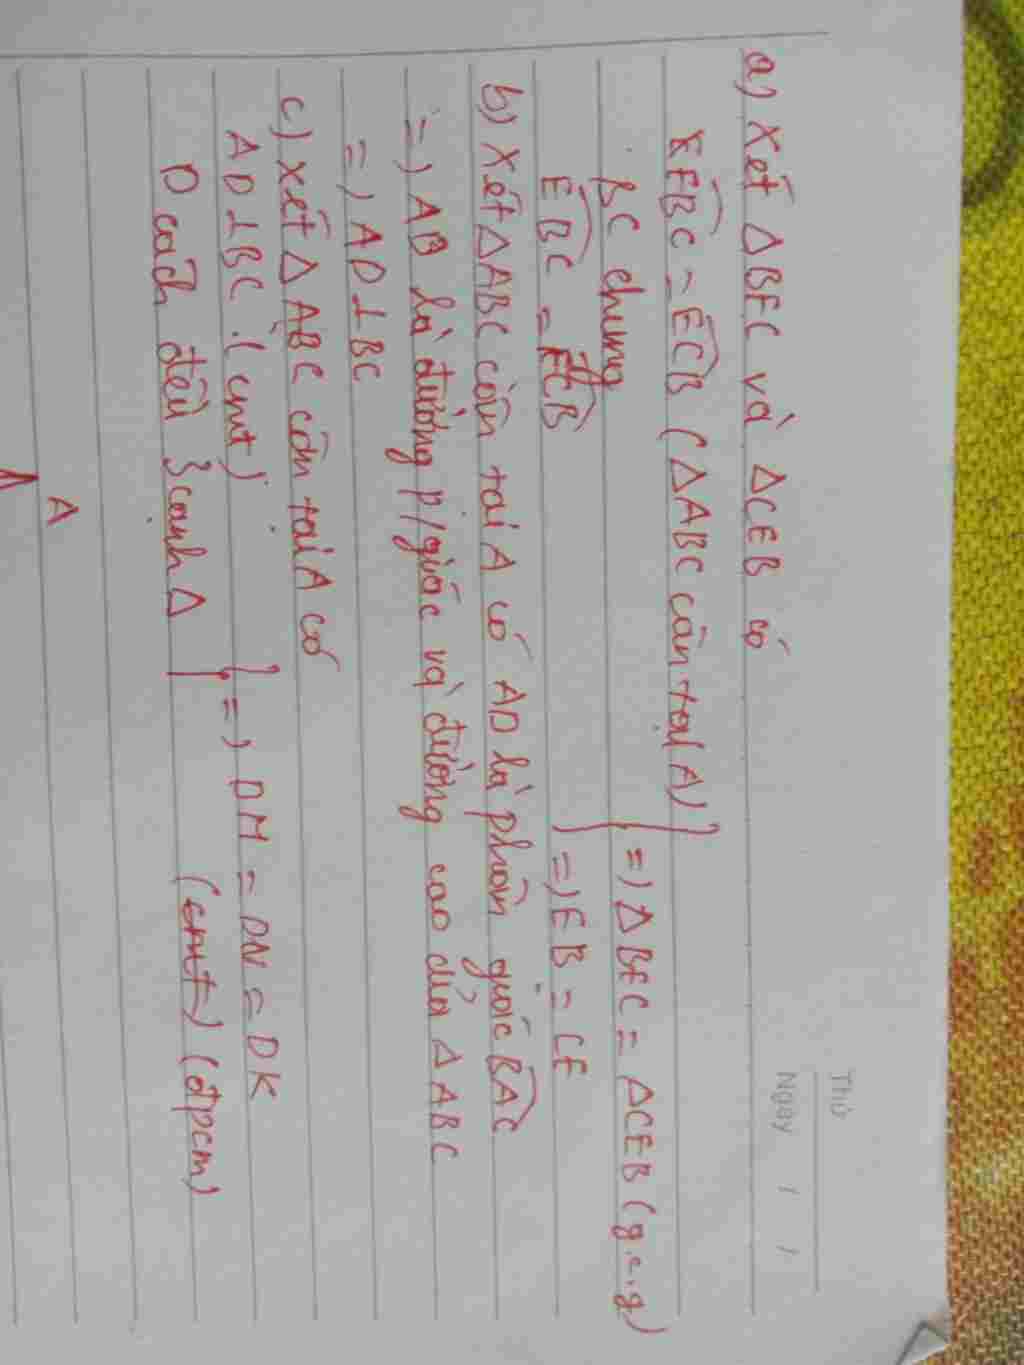 Thứ
Ngày / /
a) Xét ΔBFC và ΔCEB có
FBC = ECB (ΔABC cân tại A)
BC chung } => ΔBFC = ΔCEB (g.c.g)
EBC = FCB => EB = CF
b) Xét ΔABC cân tại A có AD là phân giác BAC
=> AB là đường p/giác và đường cao của ΔABC
=> AD ⊥ BC
c) Xét ΔABC cân tại A có
AD ⊥ BC (cmt) } => DM = DN = DK
D cách đều 3 cạnh Δ (cmt) (đpcm)
A